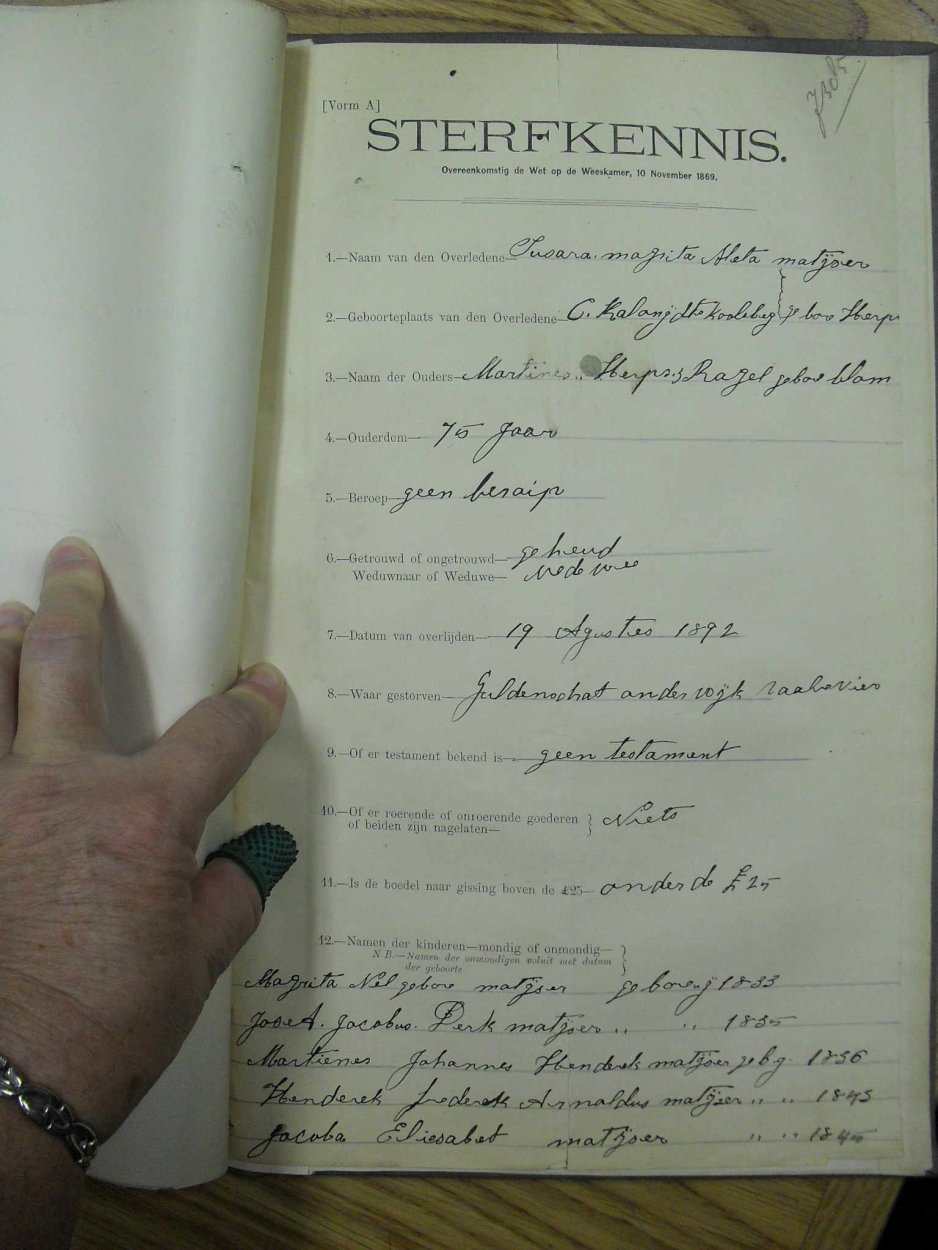 [Vorm A]
STERFKENNIS.
Overeenkomstig de Wet op de Weeskamer, 10 November 1869.
1.—Naam van den Overledene— Susara. magrita Aleta matyser
2.—Geboorteplaats van den Overledene— C. gebore Herps
3.—Naam der Ouders— Martines „ Herps. & Ragel gebore blom
4.—Ouderdom— 75 Jaar
5.—Beroep— geen beraip
6.—Getrouwd of ongetrouwd— geheud
Weduwnaar of Weduwe— Wedewee
7.—Datum van overlijden— 19 Agusties 1892
8.—Waar gestorven— Guldenschat onder wijk
9.—Of er testament bekend is— geen testament
10.—Of er roerende of onroerende goederen } Niets
of beiden zijn nagelaten—
11.—Is de boedel naar gissing boven de £25— onder de £25
12.—Namen der kinderen—mondig of onmondig— }
N B.—Namen der onmondigen voluit met datum
der geboorte
Magrita Nel gebore matyser gebore 1833
Jacobus. Derk matyser „ „ 1835
Martienes Johannes Henderek matyser geb 1836
Henderek frederek Arnaldus matyser „ „ 1843
Jacoba Eliesabet matyser „ „ 1845